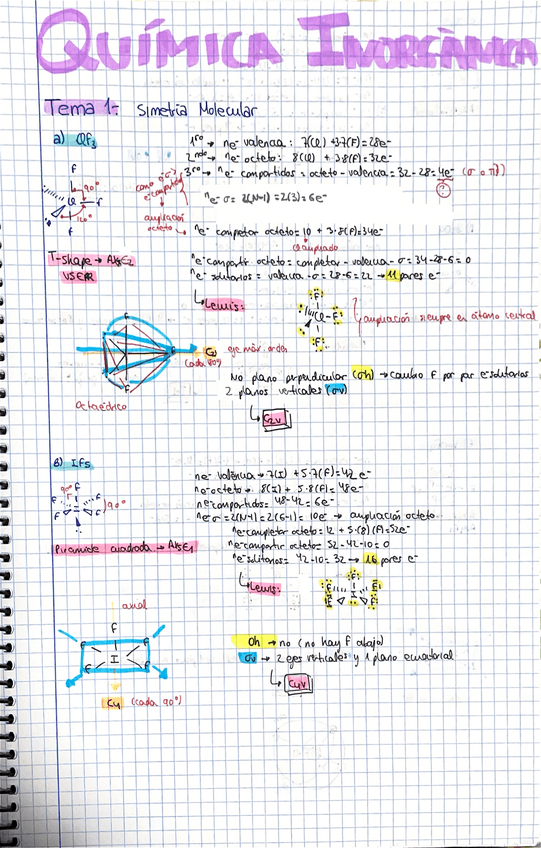 QUÍMICA INORGÀNICA
Tema 1: Simetria Molecular
a) ClF3
1ro → ne- valencia: 7(Cl) + 3·7(F) = 28e-
2ndo → ne- octeto: 8(Cl) + 3·8(F) = 32e-
3ro → ne- compartidos = octeto - valencia = 32-28 = 4e- (σ o π))
?
ne- σ = 2(N-1) = 2(3) = 6e-
como
ampliación
octeto
→ ne- completar octeto = 10 + 3·8(F) = 34e-
ampliado
F
90°
Cl
F
F
T-shape → AX3E2
VSEPR
ne- compartir octeto = completar - valencia - σ = 34-28-6 = 0
ne- solitarios = valencia - σ = 28-6 = 22 → 11 pares e-
Lewis:
F
Cl-F
F
ampliación siempre en átomo central
F
F
F
C2
eje máx. orden
(cada 180°)
Octaédrico
No plano perpendicular (σh) → cambio F por par e- solitarios
2 planos verticales (σv)
C2v
B) IF5
ne- valència → 7(I) + 5·7(F) = 42 e-
ne- octeto → 8(I) + 5·8(F) = 48e-
ne- compartidos = 48-42 = 6e-
ne- σ = 2(N-1) = 2(6-1) = 10e- → ampliación octeto
ne- completar octeto = 12 + 5·(8)(F) = 52e-
ne- compartir octeto = 52-42-10 = 0
ne- solitarios = 42-10 = 32 → 16 pares e-
90°
F
F
F
I
F
F
90°
Piramide cuadrada → AX5E1
Lewis:
F
F
F
I
F
F
axial
F
F
F
I
F
F
C4 (cada 90°)
σh → no (no hay F abajo)
σv → 2 ejes verticales y 1 plano ecuatorial
C4v